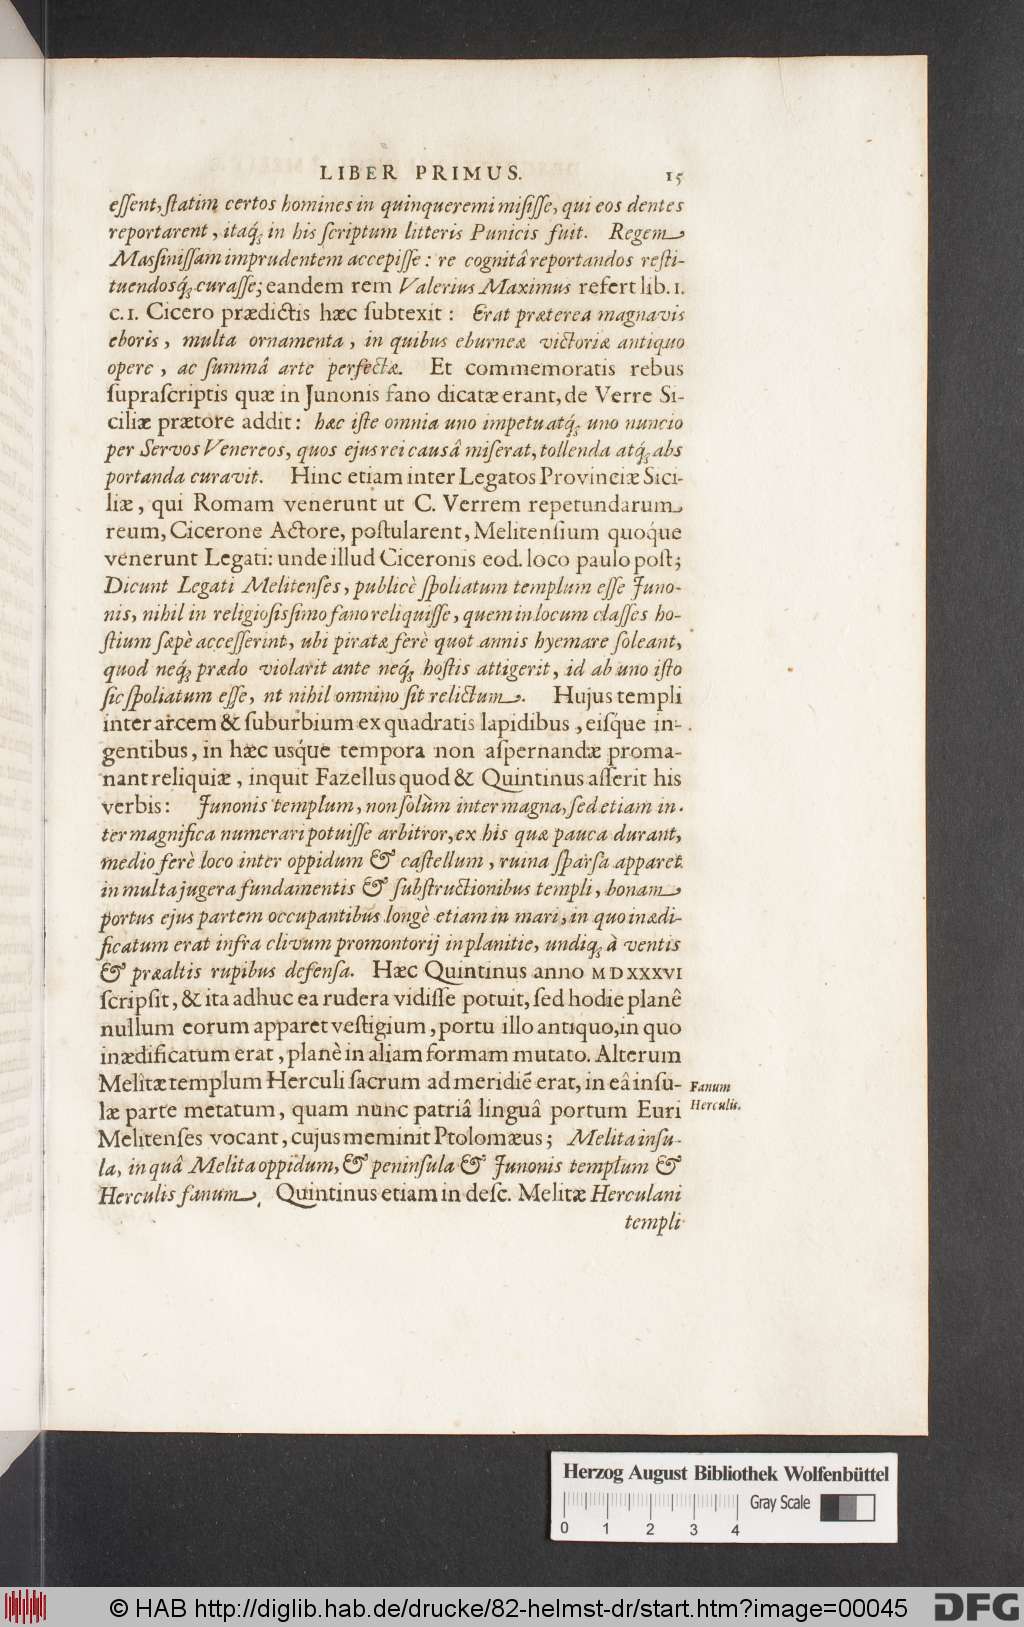 LIBER PRIMUS. 15
essent, statim certos homines in quinqueremi misisse, qui eos dentes
reportarent, itaq́; in his scriptum litteris Punicis fuit. Regem
Massinissam imprudentem accepisse: re cognitâ reportandos resti-
tuendosq́; curasse; eandem rem Valerius Maximus refert lib. 1.
c. 1. Cicero prædictis hæc subtexit: Erat præterea magna vis
eboris, multa ornamenta, in quibus eburneæ victoriæ antiquo
opere, ac summâ arte perfectæ. Et commemoratis rebus
suprascriptis quæ in Junonis fano dicatæ erant, de Verre Si-
ciliæ prætore addit: hæc iste omnia uno impetu atq́; uno nuncio
per Servos Venereos, quos ejus rei causâ miserat, tollenda atq́; abs
portanda curavit. Hinc etiam inter Legatos Provinciæ Sici-
liæ, qui Romam venerunt ut C. Verrem repetundarum
reum, Cicerone Actore, postularent, Melitensium quoq́ue
venerunt Legati: unde illud Ciceronis eod. loco paulo post;
Dicunt Legati Melitenses, publicè spoliatum templum esse Juno-
nis, nihil in religiosissimo fano reliquisse, quem in locum classes ho-
stium sæpè accesserint, ubi piratæ ferè quot annis hyemare soleant,
quod neq́; prædo violarit ante neq́; hostis attigerit, id ab uno isto
sic spoliatum esse, nt nihil omnino sit relictum. Hujus templi
inter arcem & suburbium ex quadratis lapidibus, eisq́ue in-
gentibus, in hæc usq́ue tempora non aspernandæ proma-
nant reliquiæ, inquit Fazellus quod & Quintinus asserit his
verbis: Junonis templum, non solùm inter magna, sed etiam in-
ter magnifica numerari potuisse arbitror, ex his quæ pauca durant,
medio ferè loco inter oppidum & castellum, ruina sparsa apparet
in multa jugera fundamentis & substructionibus templi, bonam
portus ejus partem occupantibus longè etiam in mari, in quo inædi-
ficatum erat infra clivum promontorij in planitie, undiq; à ventis
& præaltis rupibus defensa. Hæc Quintinus anno MDXXXVI
scripsit, & ita adhuc ea rudera vidisse potuit, sed hodie planê
nullum eorum apparet vestigium, portu illo antiquo, in quo
inædificatum erat, planè in aliam formam mutato. Alterum
Melitæ templum Herculi sacrum ad meridiẽ erat, in eâ insu-
læ parte metatum, quam nunc patriâ linguâ portum Euri
Melitenses vocant, cujus meminit Ptolomæus; Melita insu-
la, in quâ Melita oppidum, & peninsula & Junonis templum &
Herculis fanum. Quintinus etiam in desc. Melitæ Herculani
templi
Fanum
Herculis.
Herzog August Bibliothek Wolfenbüttel
Gray Scale
0 1 2 3 4
© HAB http://diglib.hab.de/drucke/82-helmst-dr/start.htm?image=00045
DFG